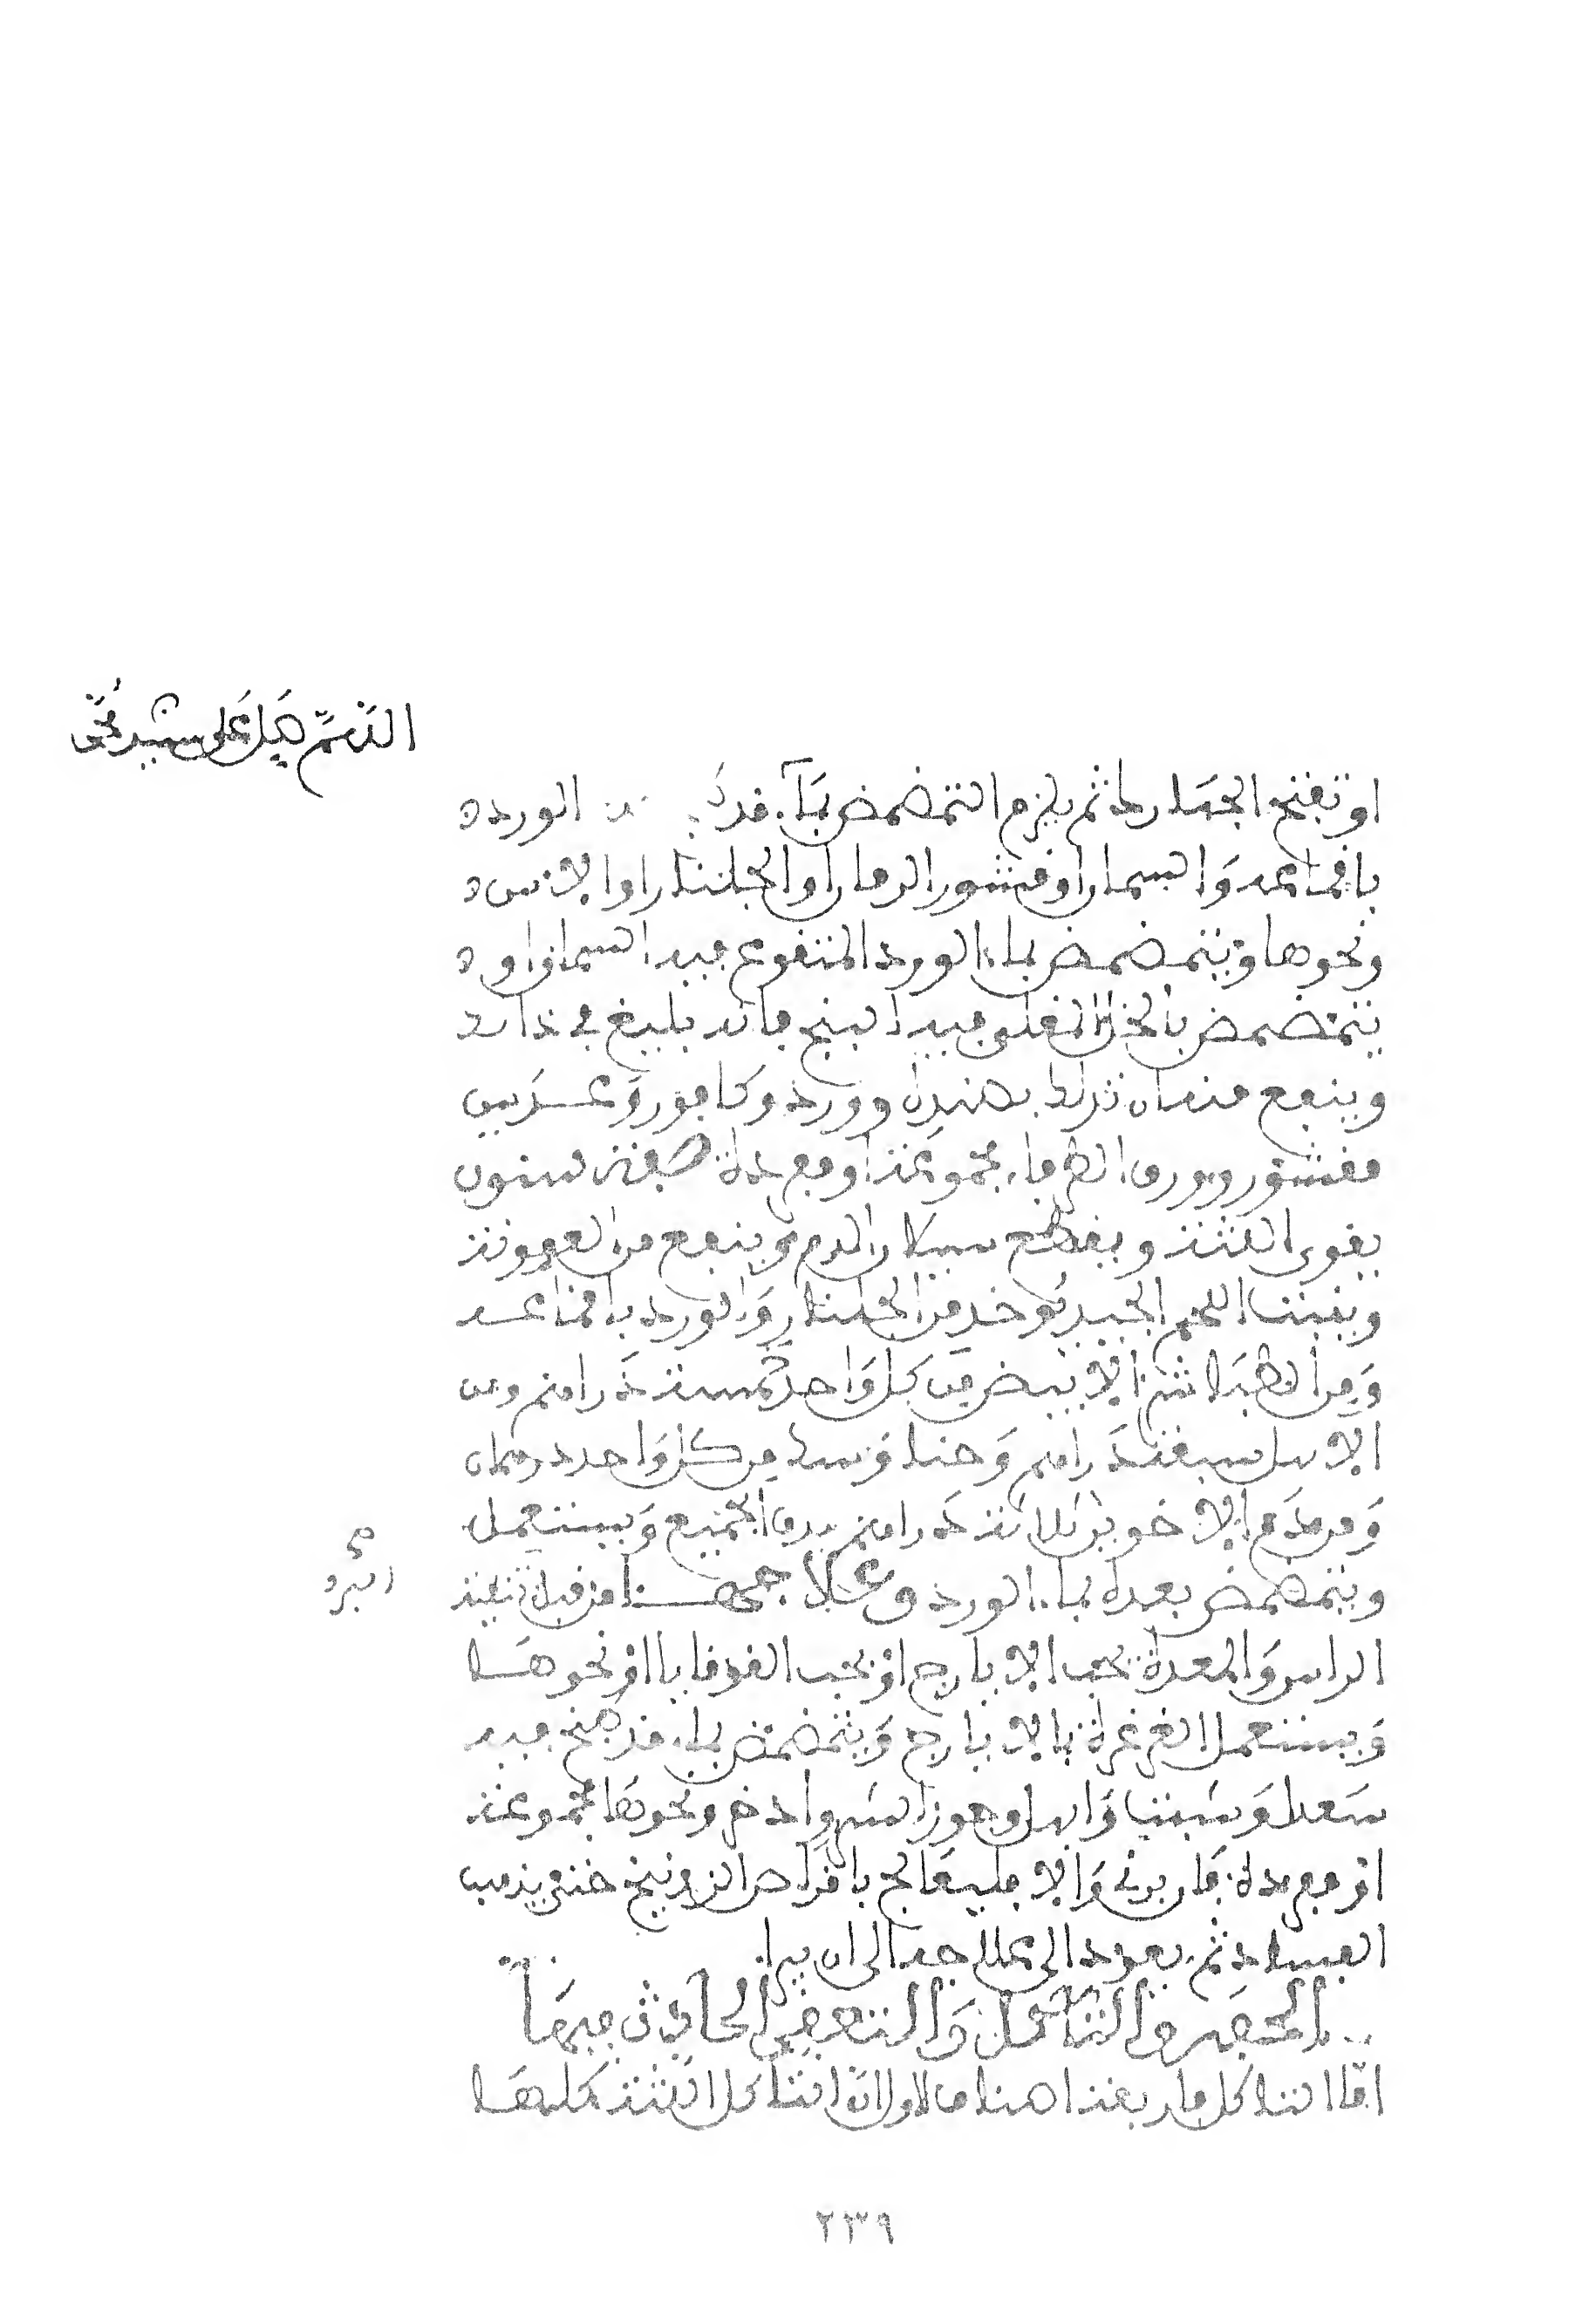 اللهم صل على سيدنا محمد
او تفتح الجهارك ثم يلزم التمضمض بماء قد الورد
باقماعه والسماق او قشور الرمان او الجلنار او الاس
ونحوها ويتمضمض بماء الورد المنقوع فيه السماق او
يتمضمض بالخل المغلى فيه البنج فانه بليغ في ذلك
وينفع منه ان تدلك بهندبا وورد وكافور وعدس
مقشور وبورق الطرفا مجموعة او مفردة صفة سنون
يقوى اللثة ويقطع سيلان الدم وينفع من العفونة
وينبت اللحم الجيد يوخذ من الجلنار والورد باقماعه
ومن الطباشير الابيض من كل واحد خمسة دراهم ومن
الاس سبعة دراهم وحنا وسك من كل واحد درهمان
ومن دم الاخوين ثلاثة دراهم يدق الجميع ويستعمل
ويتمضمض بعده بماء الورد وعلاجه هنا من قبل تنقية
من البرد
الراس والمعدة بحب الايارج او بحب القوقايا او نحوها
ويستعمل الغرغرة بالايارج ويتمضمض بماء قد طبخ فيه
سعد وشبت وابهل وجوز السرو واذخر ونحوها مجموعة
او مفردة فان برئ والا فليعالج باقراص الزرنيخ حتى يذهب
الفساد ثم يعود الى علاجه الى ان يبرا
الحفر والتاكل والتعفن الحادث فيها
اما التاكل فاريد هنا الاول ان اتاكل اللثة كلها
٢٣٩